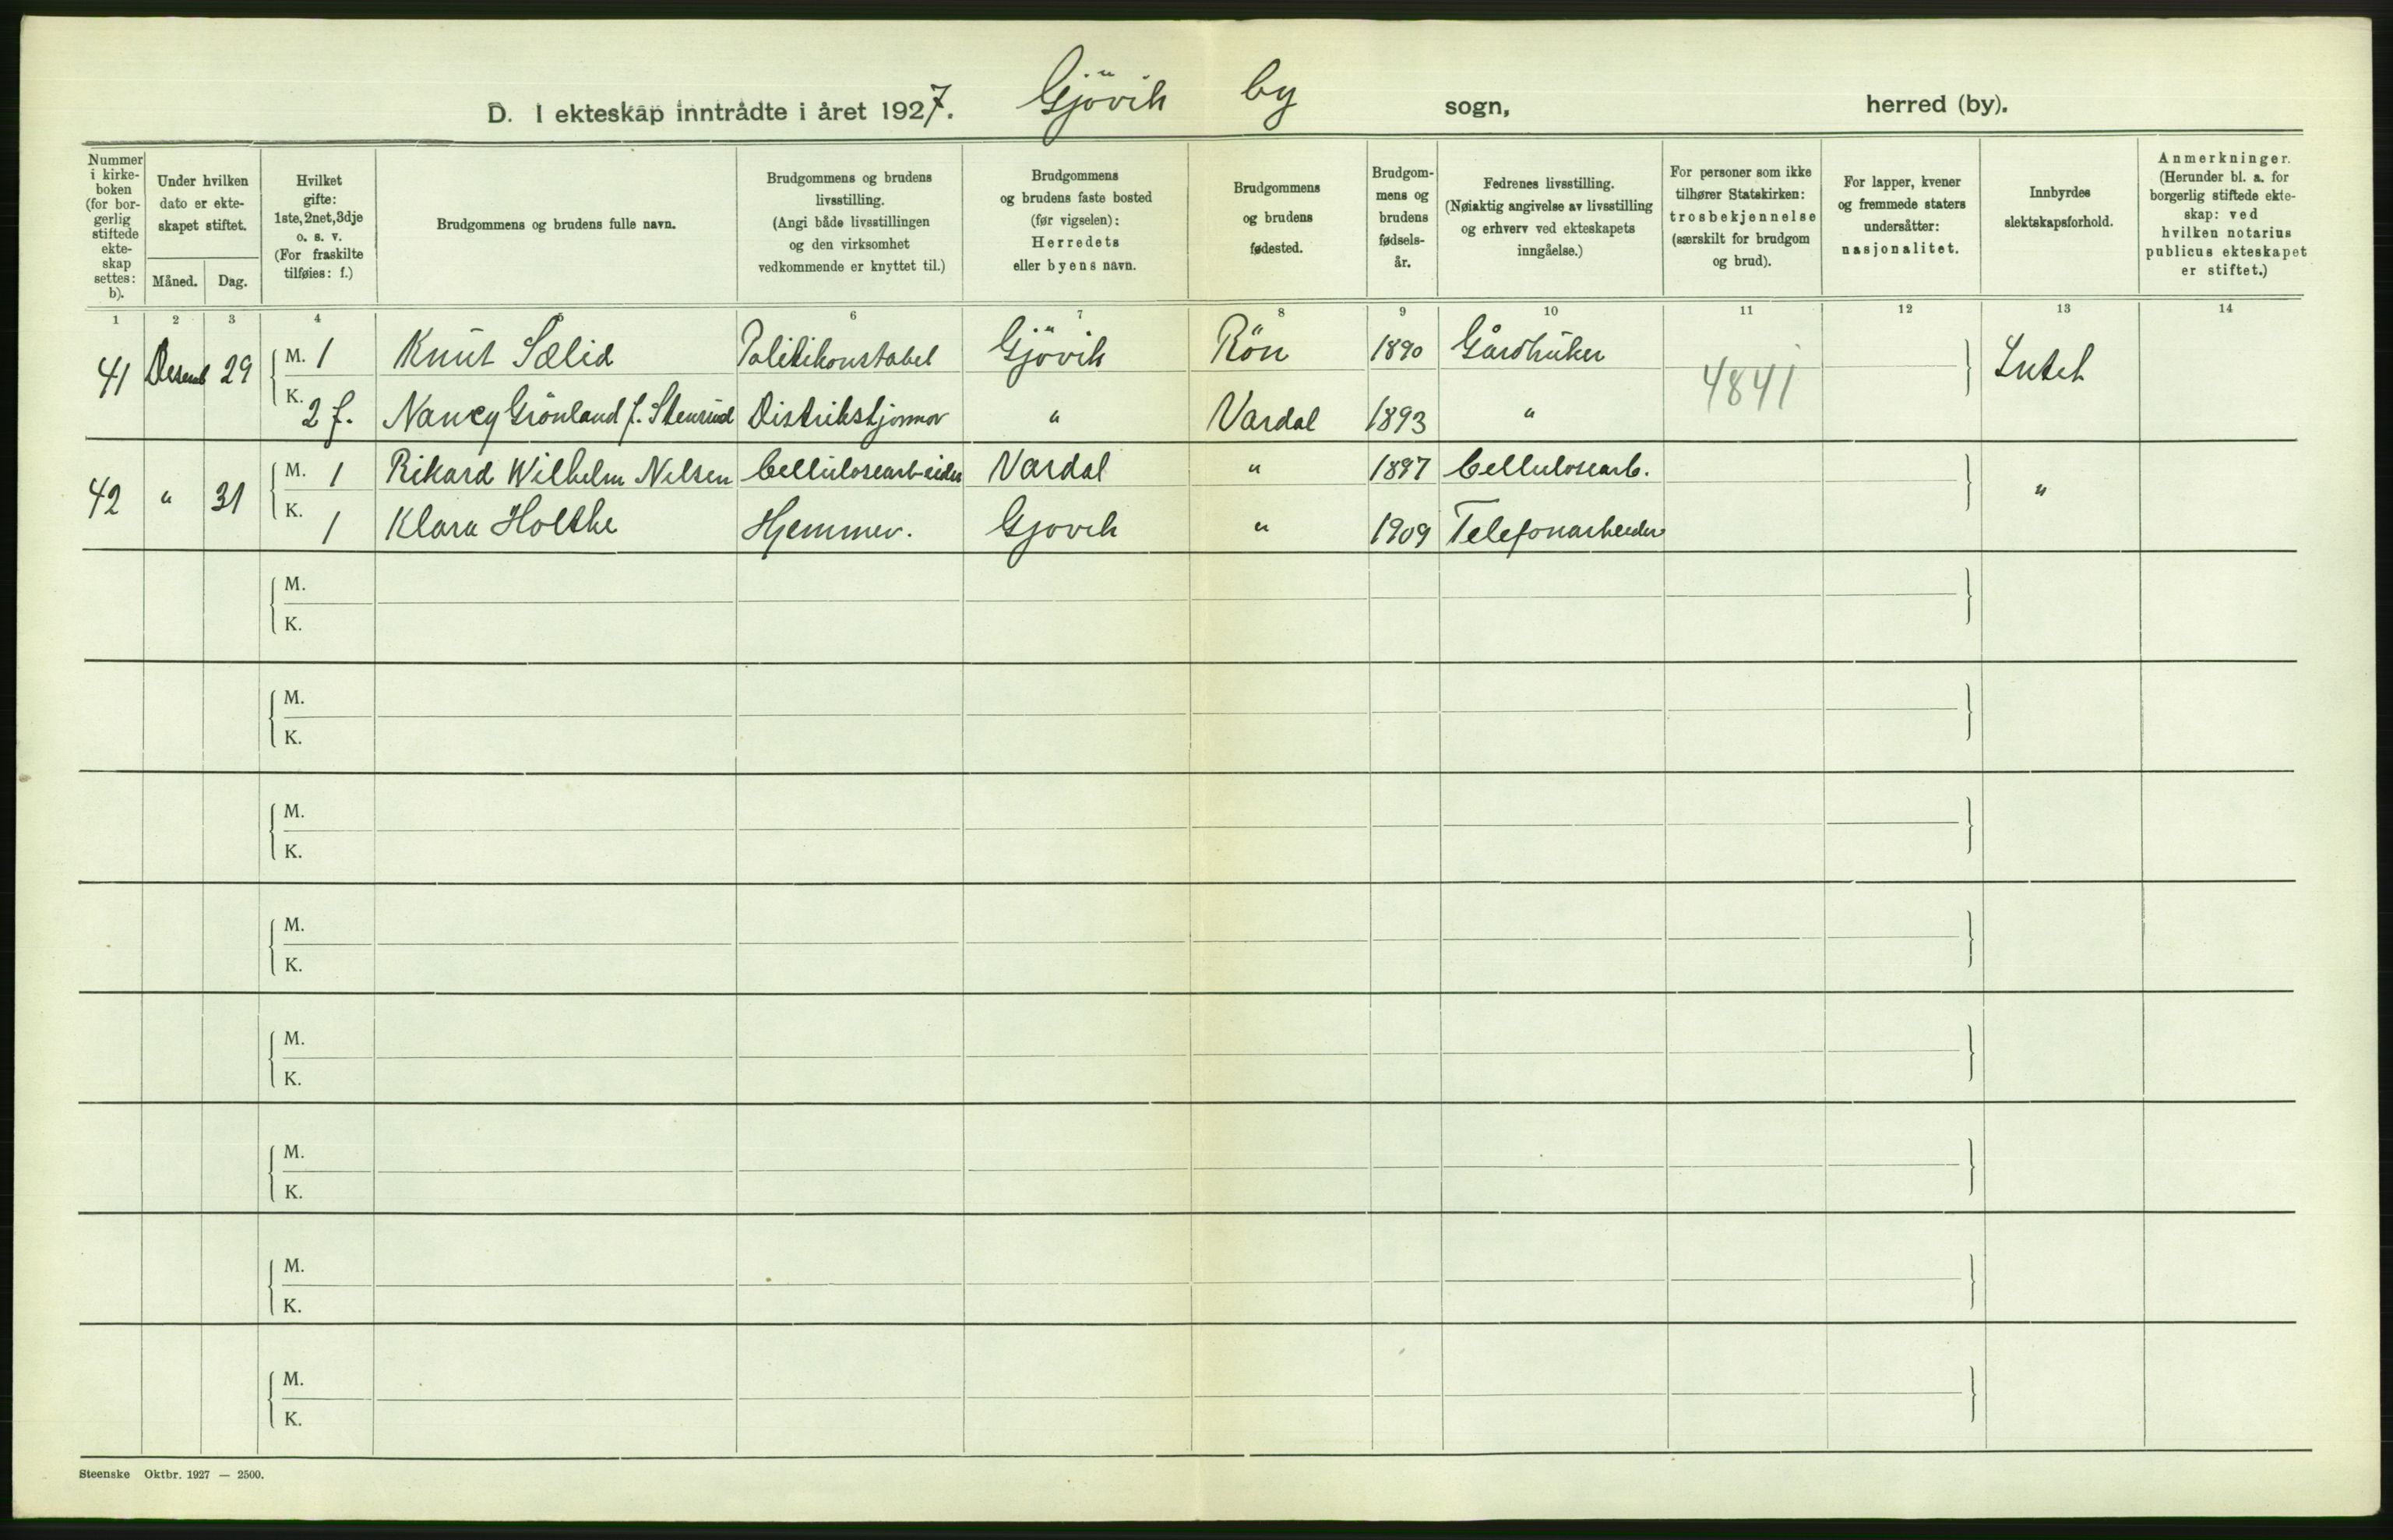 D. I ekteskap inntrådte i året 1927. Gjövik by sogn, herred (by).
Nummer i kirke-boken (for bor-gerlig stiftede ekte-skap settes: b).
Under hvilken dato er ekte-skapet stiftet.
Måned. Dag.
Hvilket gifte: 1ste, 2net, 3dje o. s. v. (For fraskilte tilføies: f.)
Brudgommens og brudens fulle navn.
Brudgommens og brudens livsstilling. (Angi både livsstillingen og den virksomhet vedkommende er knyttet til.)
Brudgommens og brudens faste bosted (før vigselen): Herredets eller byens navn.
Brudgommens og brudens fødested.
Brudgom-mens og brudens fødsels-år.
Fedrenes livsstilling. (Nøiaktig angivelse av livsstilling og erhverv ved ekteskapets inngåelse.)
For personer som ikke tilhører Statskirken: trosbekjennelse (særskilt for brudgom og brud).
For lapper, kvener og fremmede staters undersåtter: nasjonalitet.
Innbyrdes slektskapsforhold.
Anmerkninger. (Herunder bl. a. for borgerlig stiftede ekte-skap: ved hvilken notarius publicus ekteskapet er stiftet.)
1 2 3 4 5 6 7 8 9 10 11 12 13 14
41 Desemb 29 M. 1 Knut Sælid Politikonstabel Gjövik Rön 1890 Gårdbruker 4841 Intet
K. 2 f. Nancy Grönland f. Stensrud Distriktsjormor " Vardal 1893 "
42 " 31 M. 1 Rikard Wilhelm Nilsen Cellulosearbeider Vardal " 1897 Cellulosearb. "
K. 1 Klara Holthe Hjemmev. Gjovik " 1909 Telefonarbeider
M.
K.
M.
K.
M.
K.
M.
K.
M.
K.
M.
K.
M.
K.
M.
K.
Steenske Oktbr. 1927 — 2500.